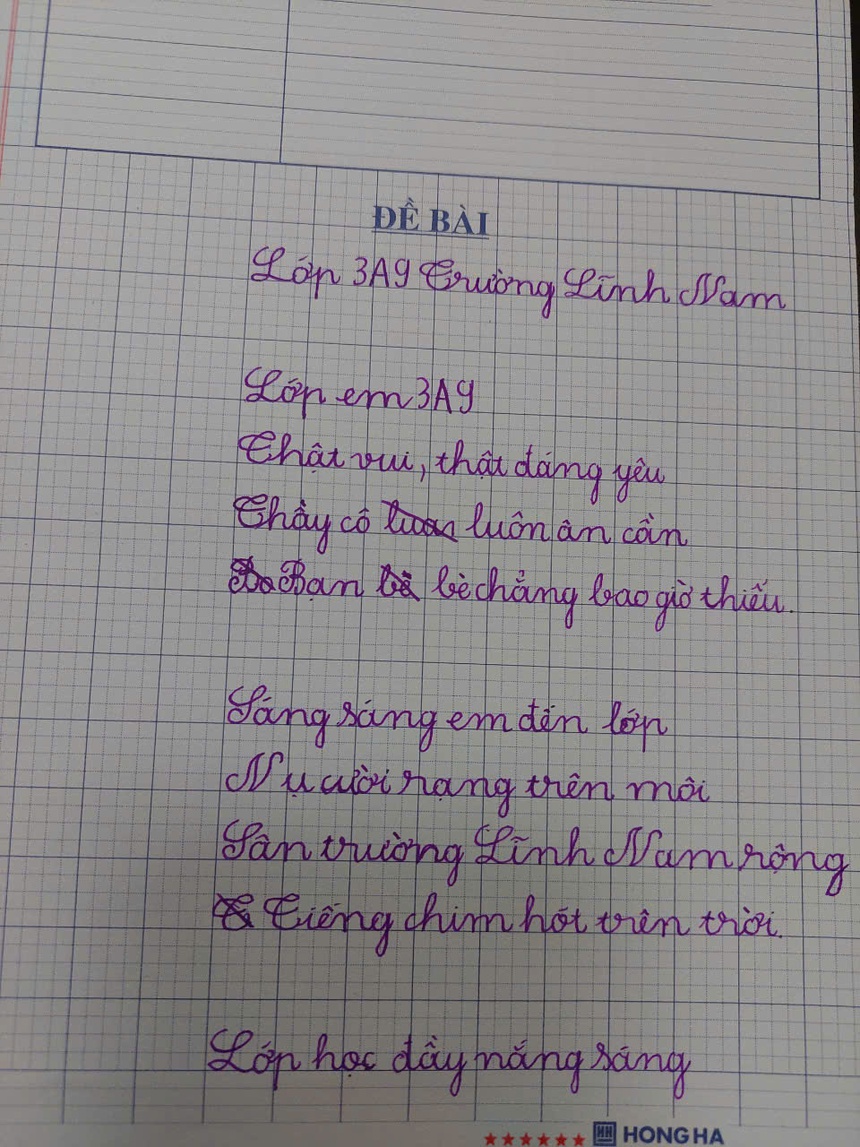 ĐỀ BÀI
Lớp 3A9 Trường Lĩnh Nam
Lớp em 3A9
Thật vui, thật đáng yêu
Thầy cô luôn ân cần
Bạn bè chẳng bao giờ thiếu.
Sáng sáng em đến lớp
Nụ cười rạng trên môi
Sân trường Lĩnh Nam rộng
Tiếng chim hót trên trời.
Lớp học đầy nắng sáng
HONG HA